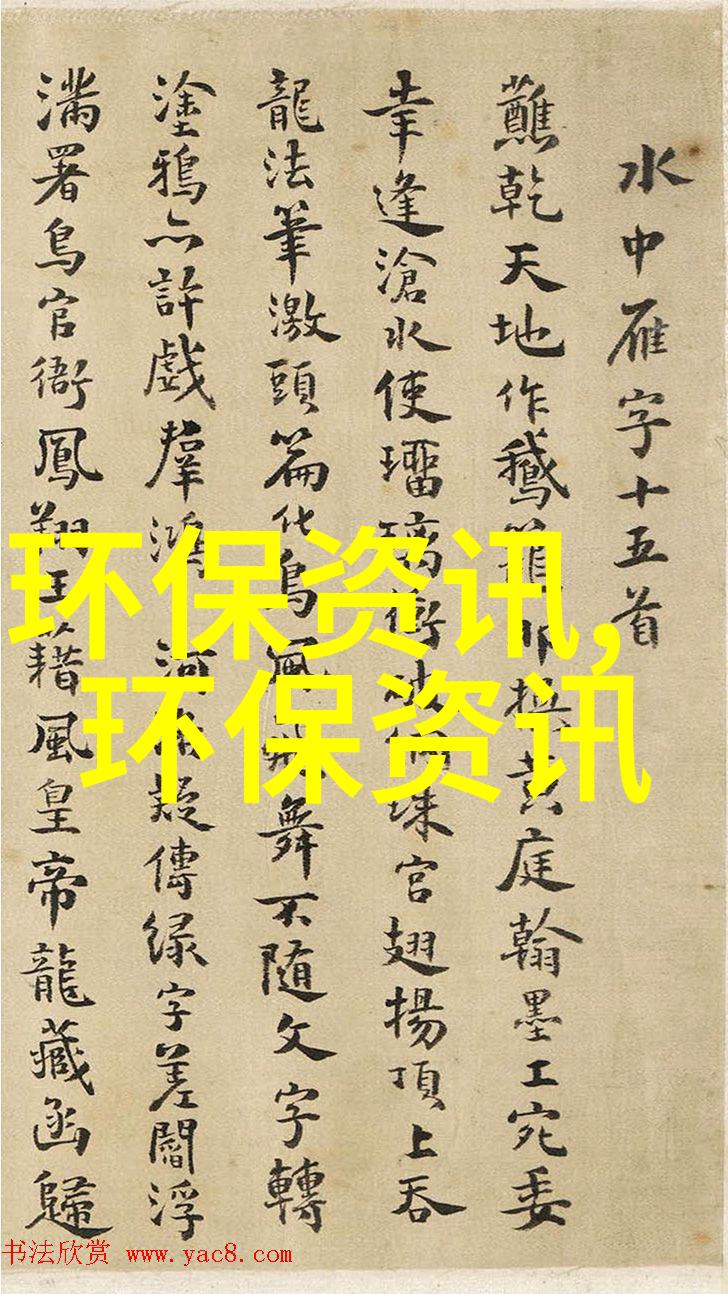 水中雁字十五首
蘸乾天地作鵝黄庭翰墨工宛委
幸逢滄水使瑠璃珠宮翅揚頂上吞
龍法筆激頭篇化鳥風舞不随文字轉
塗鴉亦許戲羣鴻河疑傳緑字差閻浮
滿署鳥官銜鳳翔王籍風皇帝龍藏函歸
环保资讯,
环保资讯
书法欣赏 www.yac8.com